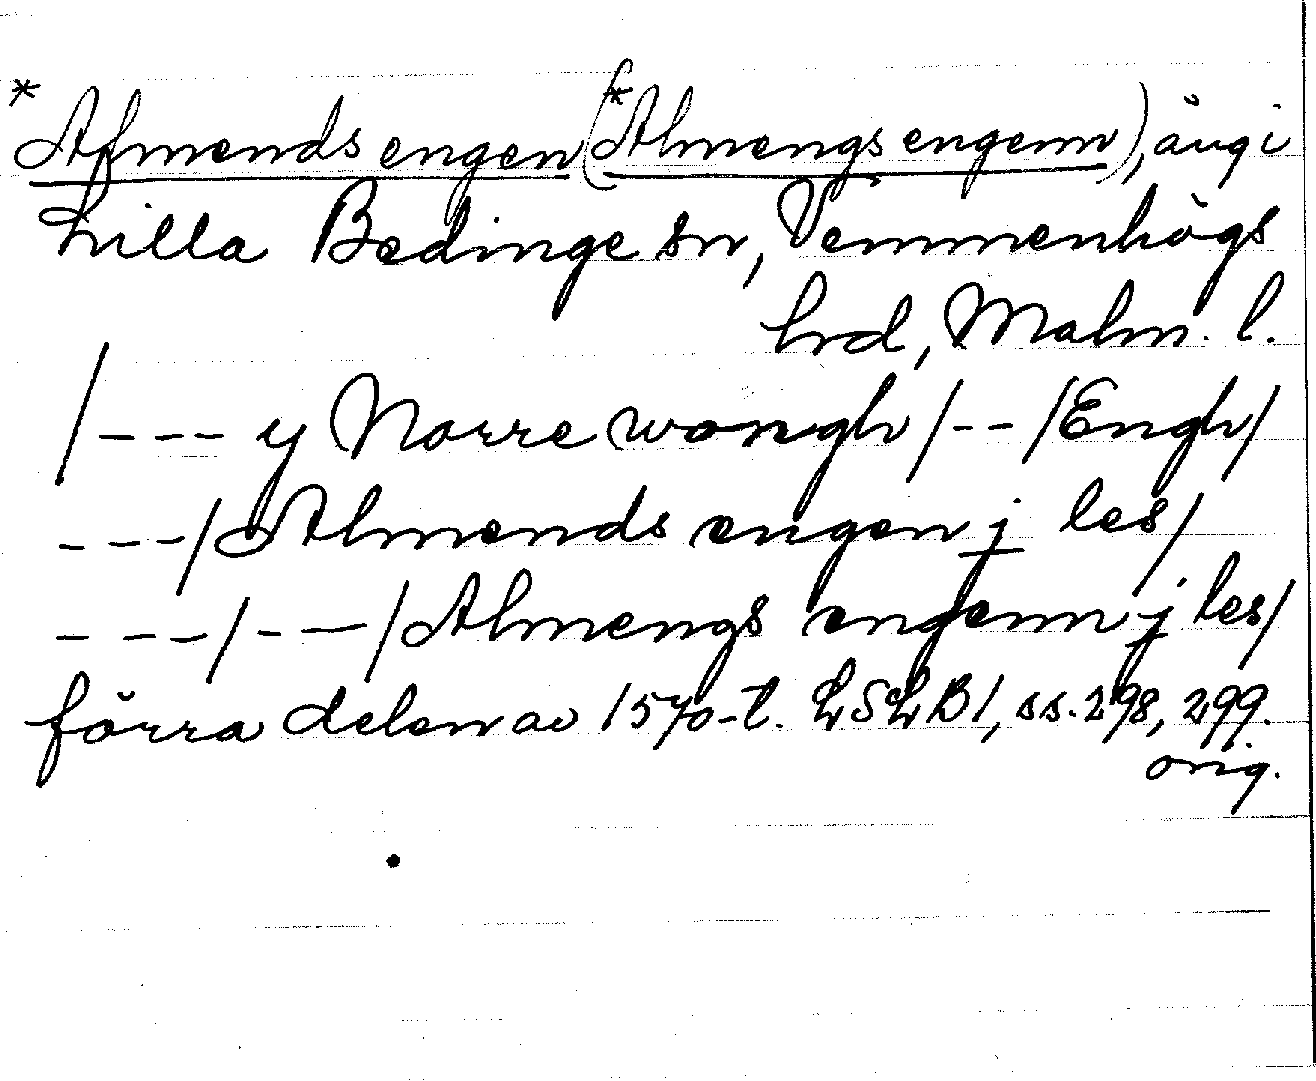 *Almends engen (*Almengs engenn), äng i
Lilla Bedinge sn, Vemmenhögs
hrd, Malm. l.
/--- y Norre wongh/--/Engh/
---/Almends engen j les/
---/-–/Almengs engenn j les/
förra delen av 1570-t. LSLB1, ss. 298, 299.
orig.